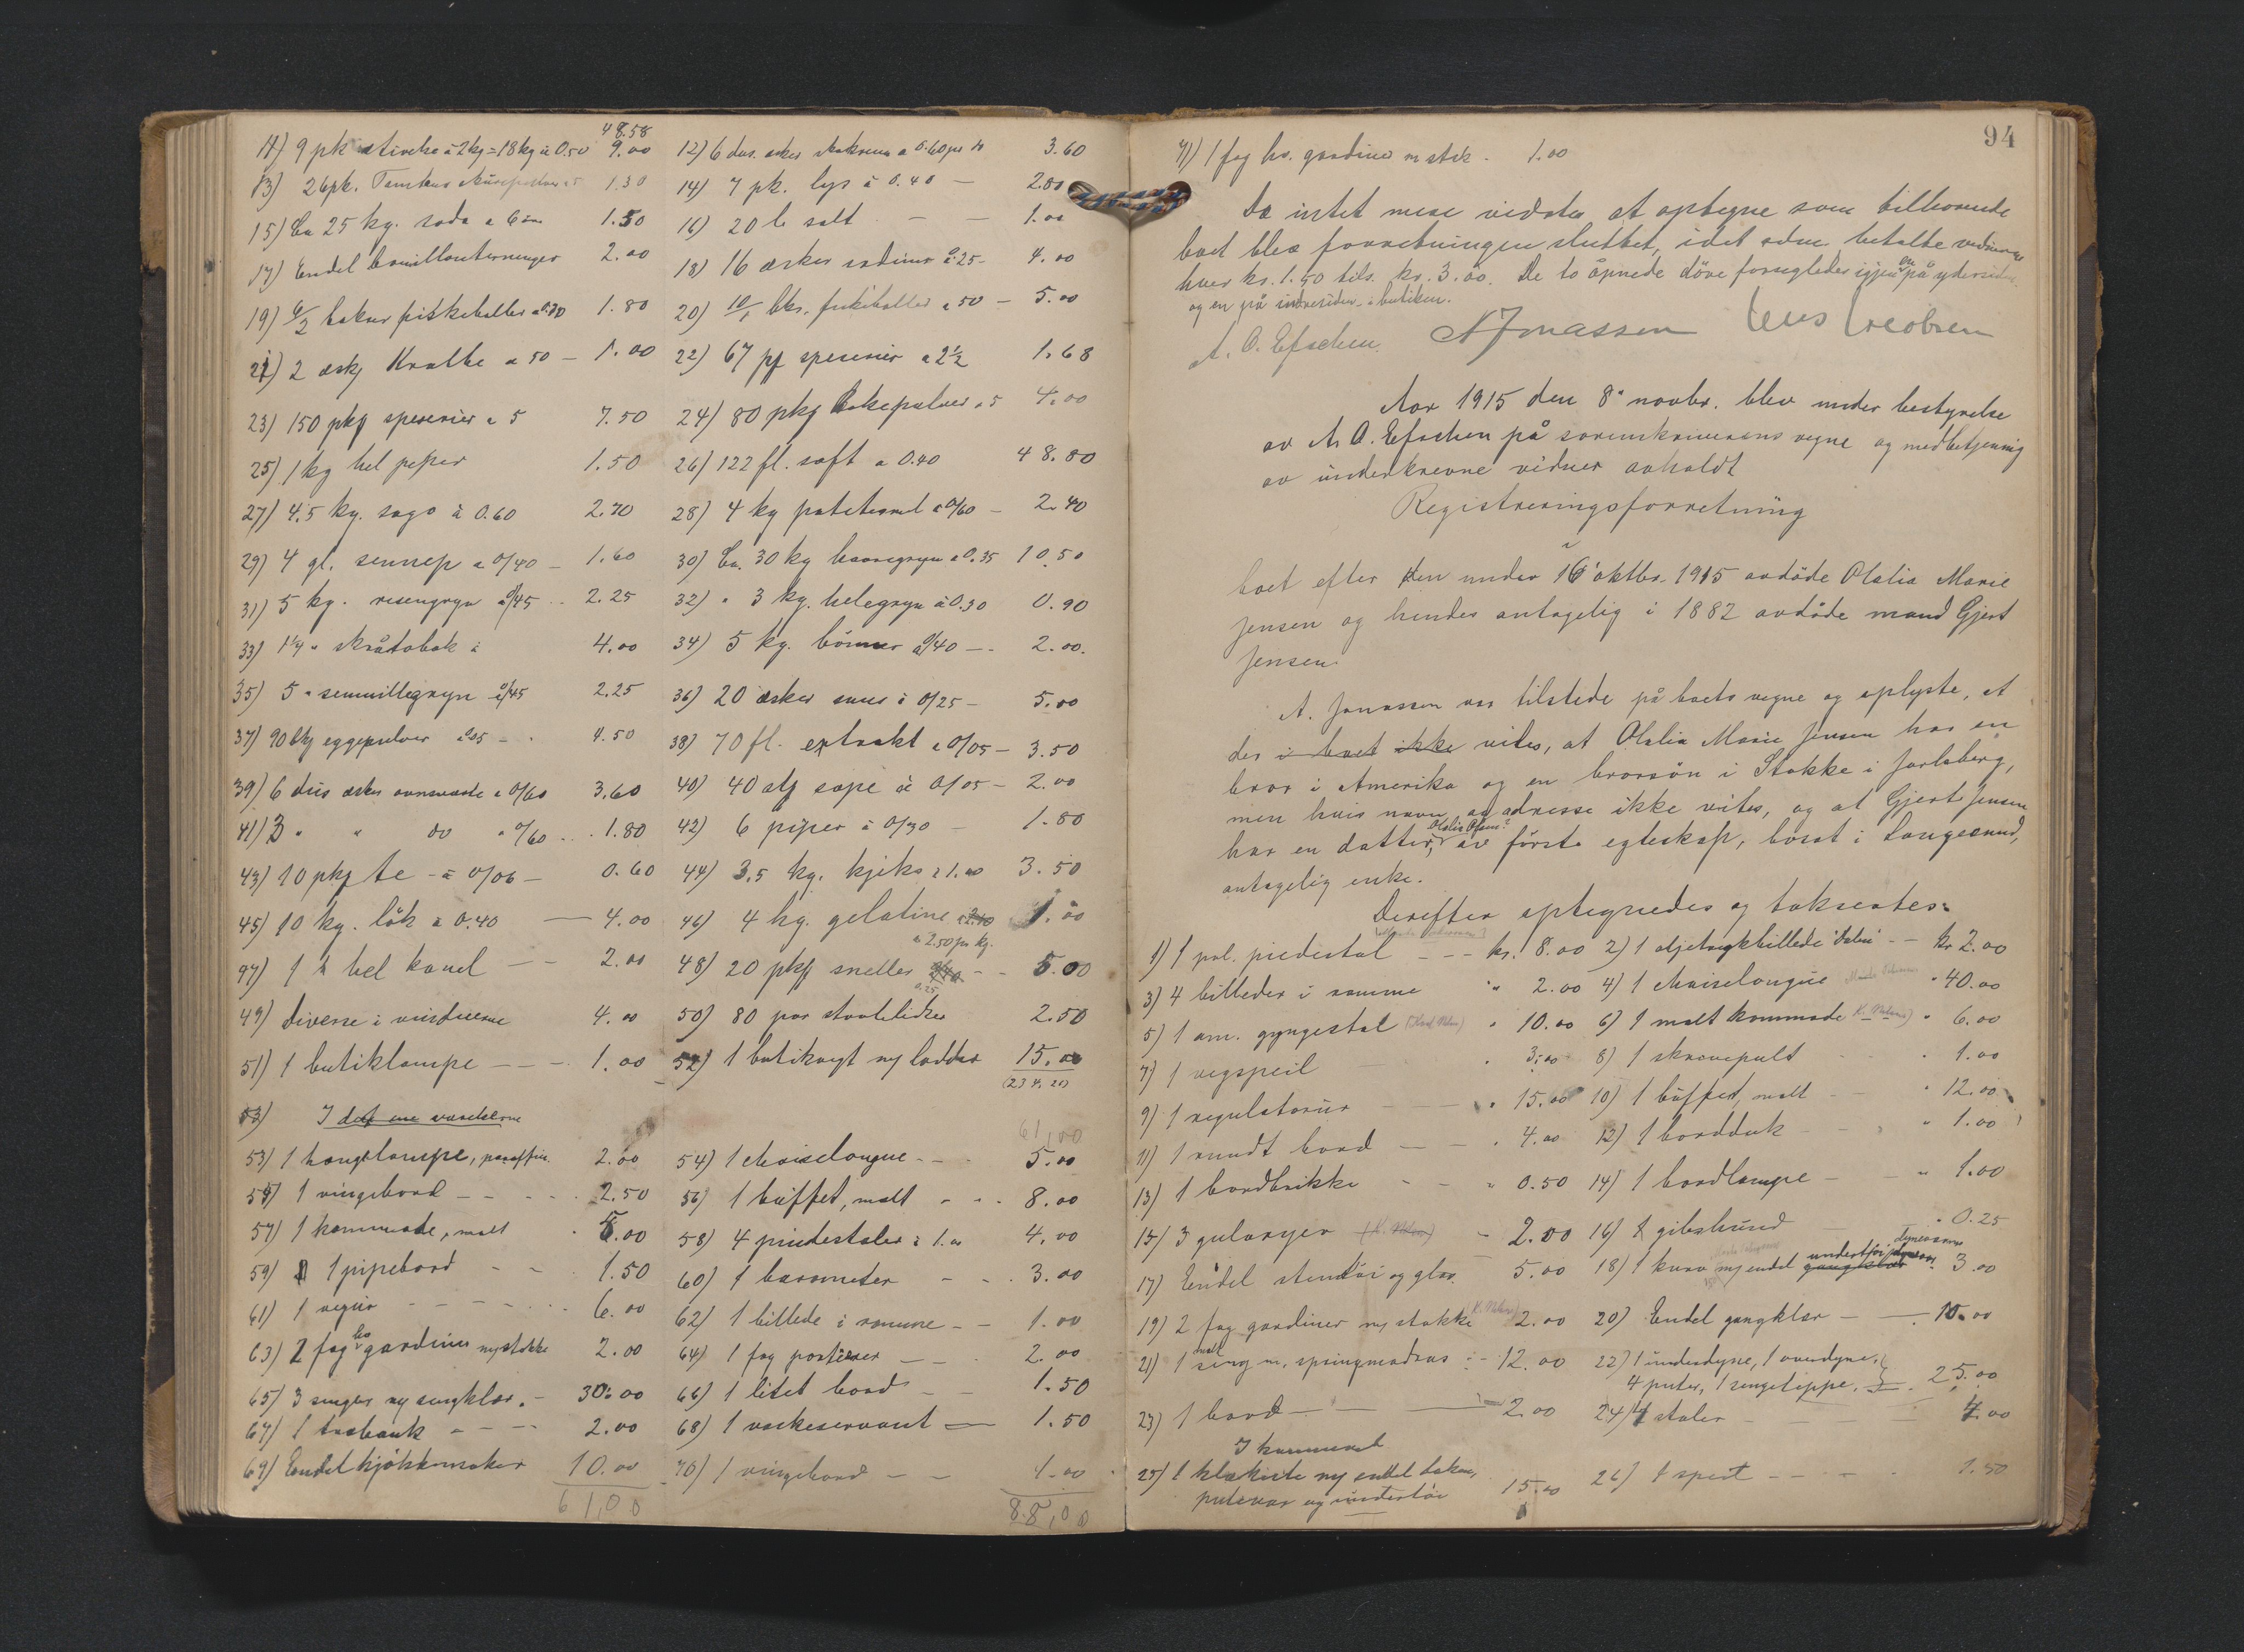 48.58
11) 9 pk stivelse à 2 kg = 18 kg à 0.50 9.00 12) 6 dus. esker skokrem a 0.60 pr ds 3.60
13) 26 pk. 1.30 14) 7 pk. lys à 0.40 — 2.80
15) Ca 25 kg. soda a 6 øre 1.50 16) 20 l salt — — 1.00
17) Endel bouillonterninger 2.00 18) 16 æsker sardiner à 25 - 4.00
19) 6/2 bokser fiskeboller a 0.30 1.80 20) 10/1 bks. fiskeboller a 50 — 5.00
21) 2 æsk Krabbe a 50 — 1.00 22) 67 pk speserier a 2½ 1.68
23) 150 pkg speserier a 5 7.50 24) 80 pkg bakepulver a 5 4.00
25) 1 kg hel peper 1.50 26) 122 fl. saft a 0.40 48.80
27) 4,5 kg. sago à 0.60 2.70 28) 4 kg potetesmel a 0/60 — 2.40
29) 4 gl. sennep a 0/40 — 1.60 30) Ca. 30 kg havregryn a 0.35 10.50
31) 5 kg. risengryn a 0/45 .. 2.25 32) " 3 kg. helegryn à 0.30 0.90
33) 1¼ " skråtobak à 4.00 34) 5 kg. bönner a 0/40 — . 2.00.
35) 5 " semmillegryn a 0/45 2.25 36) 20 æsker snus à 0/25 — 5.00
37) 90 pkg eggepulver a 05 - . 4.50 38) 70 fl. extrakt a 0/05 — 3.50
39) 6 dus æsker ovnsverte a 0/60 3.60 40) 40 stg sæpe à 0/05 — 2.00
41) 3 " " do " 0/60 . . 1.80 42) 6 piper à 0/30 — 1.80
43) 10 pkg te - à 0/06 — 0.60 44) 3,5 kg. kjeks a 1.00 3.50
45) 10 kg. lök a 0.40 — 4.00 46) 4 hg. gelatine a 2.50 pr kg. 1.00
47) 1 h hel kanel — — 2.00 48) 20 pkg sneller 0.25 — - 5.00
49) Diverse i vinduerne 4.00 50) 80 par 2.50
51) 1 butiklampe — — . 1.00 52) 1 butikvegt m/ lodder 15.00
(234.20)
53) I det ene værelserne
61,00
53) 1 hængelampe, paraffin 2.00 54) 1 chaiselongue - - 5.00
55) 1 vingebord — - - . . 2.50 56) 1 büffet, malt - - . 8.00
57) 1 kommode, malt . 5.00 58) 4 pindestoler à 1.00 4.00
59) 1 pipebord - - . 1.50 60) 1 barometer - - . 3.00
61) 1 vegur - - - - . . . 6.00 62) 1 billede i ramme - - 1.00
63) 2 fag hv gardiner m/ stokke 2.00 64) 1 fag portierer — - . 2.00
65) 3 senger m/ sengklær. - 30.00 66) 1 litet bord — - 1.50
67) 1 træbænk - - - - 2.00 68) 1 vaskeservant — 1.50
69) Endel kjökkensaker 10.00 70) 1 vingebord — — 1.00
61,00 88,00
94
71) 1 fag hv. gardiner m stok - 1.00
Da intet mere vidstes at optegne som tilhørende
boet blev forretningen sluttet, idet man betalte vidnerne
hver kr. 1.50 tils. kr. 3.00. De to åpnede döre forsegledes igjen en på ydersiden
og en på indresiden i butiken.
A. O. Efschen. A Jonassen Jens Jacobsen
Aar 1915 den 8' novbr. blev under bestyrelse
av A. O. Efschen på sorenskriverens vegne og medbetjening
av underskrevne vidner avholdt
Registreringsforretning
i
boet efter den under 16' oktbr. 1915 avdöde Olalia Marie
Jensen og hendes antagelig i 1882 avdöde mand Gjert
Jensen.
A. Jonassen var tilstede på boets vegne og oplyste, at
der i boet ikke vites, at Olalia Marie Jensen har en
bror i Amerika og en brorsön i Stokke i Jarlsberg,
men hvis navn og adresse ikke vites, og at Gjert Jensen
har en datter, Olalie Olsen? av förste egteskap, bosat i Langesund,
antagelig enke.
Derefter optegnedes og takseertes:
1) 1 pol. piedestal - - - kr. 8.00 2) 1 oljetrykbillede - - kr 2.00
3) 4 billeder i ramme " 2.00 4) 1 chaiselongue " 40.00
5) 1 am. gyngestol " 10.00 6) 1 malt kommode " 6.00
7) 1 vegspeil — " 3.00 8) 1 skrivepult - " 1.00
9) 1 regulatorur — — " 15.00 10) 1 büffet, malt - — " 12.00
11) 1 rundt bord — - " 4.00 12) 1 bordduk - " 1.00
13) 1 bordbrikke - - " 0.50 14) 1 bordlampe - — " 1.00
15) 3 gulvtæper - 2.00 16) 1 gibshund " 0.25
17) Endel stentöi og glas. 5.00 18) 1 kurv m/ endel undertöi, dynevar 3.00
19) 2 fag gardiner m/ stokke 2.00 20) Endel gangklær — — . 10.00
21) 1 malt seng m. springmadras : - 12.00 22) 1 underdyne, 1 overdyne,
4 puter, 1 sengeteppe. 25.00
23) 1 bord — — 2.00 24) 4 stoler — 4.00
I kammeret
25) 1 klæskiste m/ endel laken,
putevar og undertöi 15.00 26) 1 speil - - - - 1.50